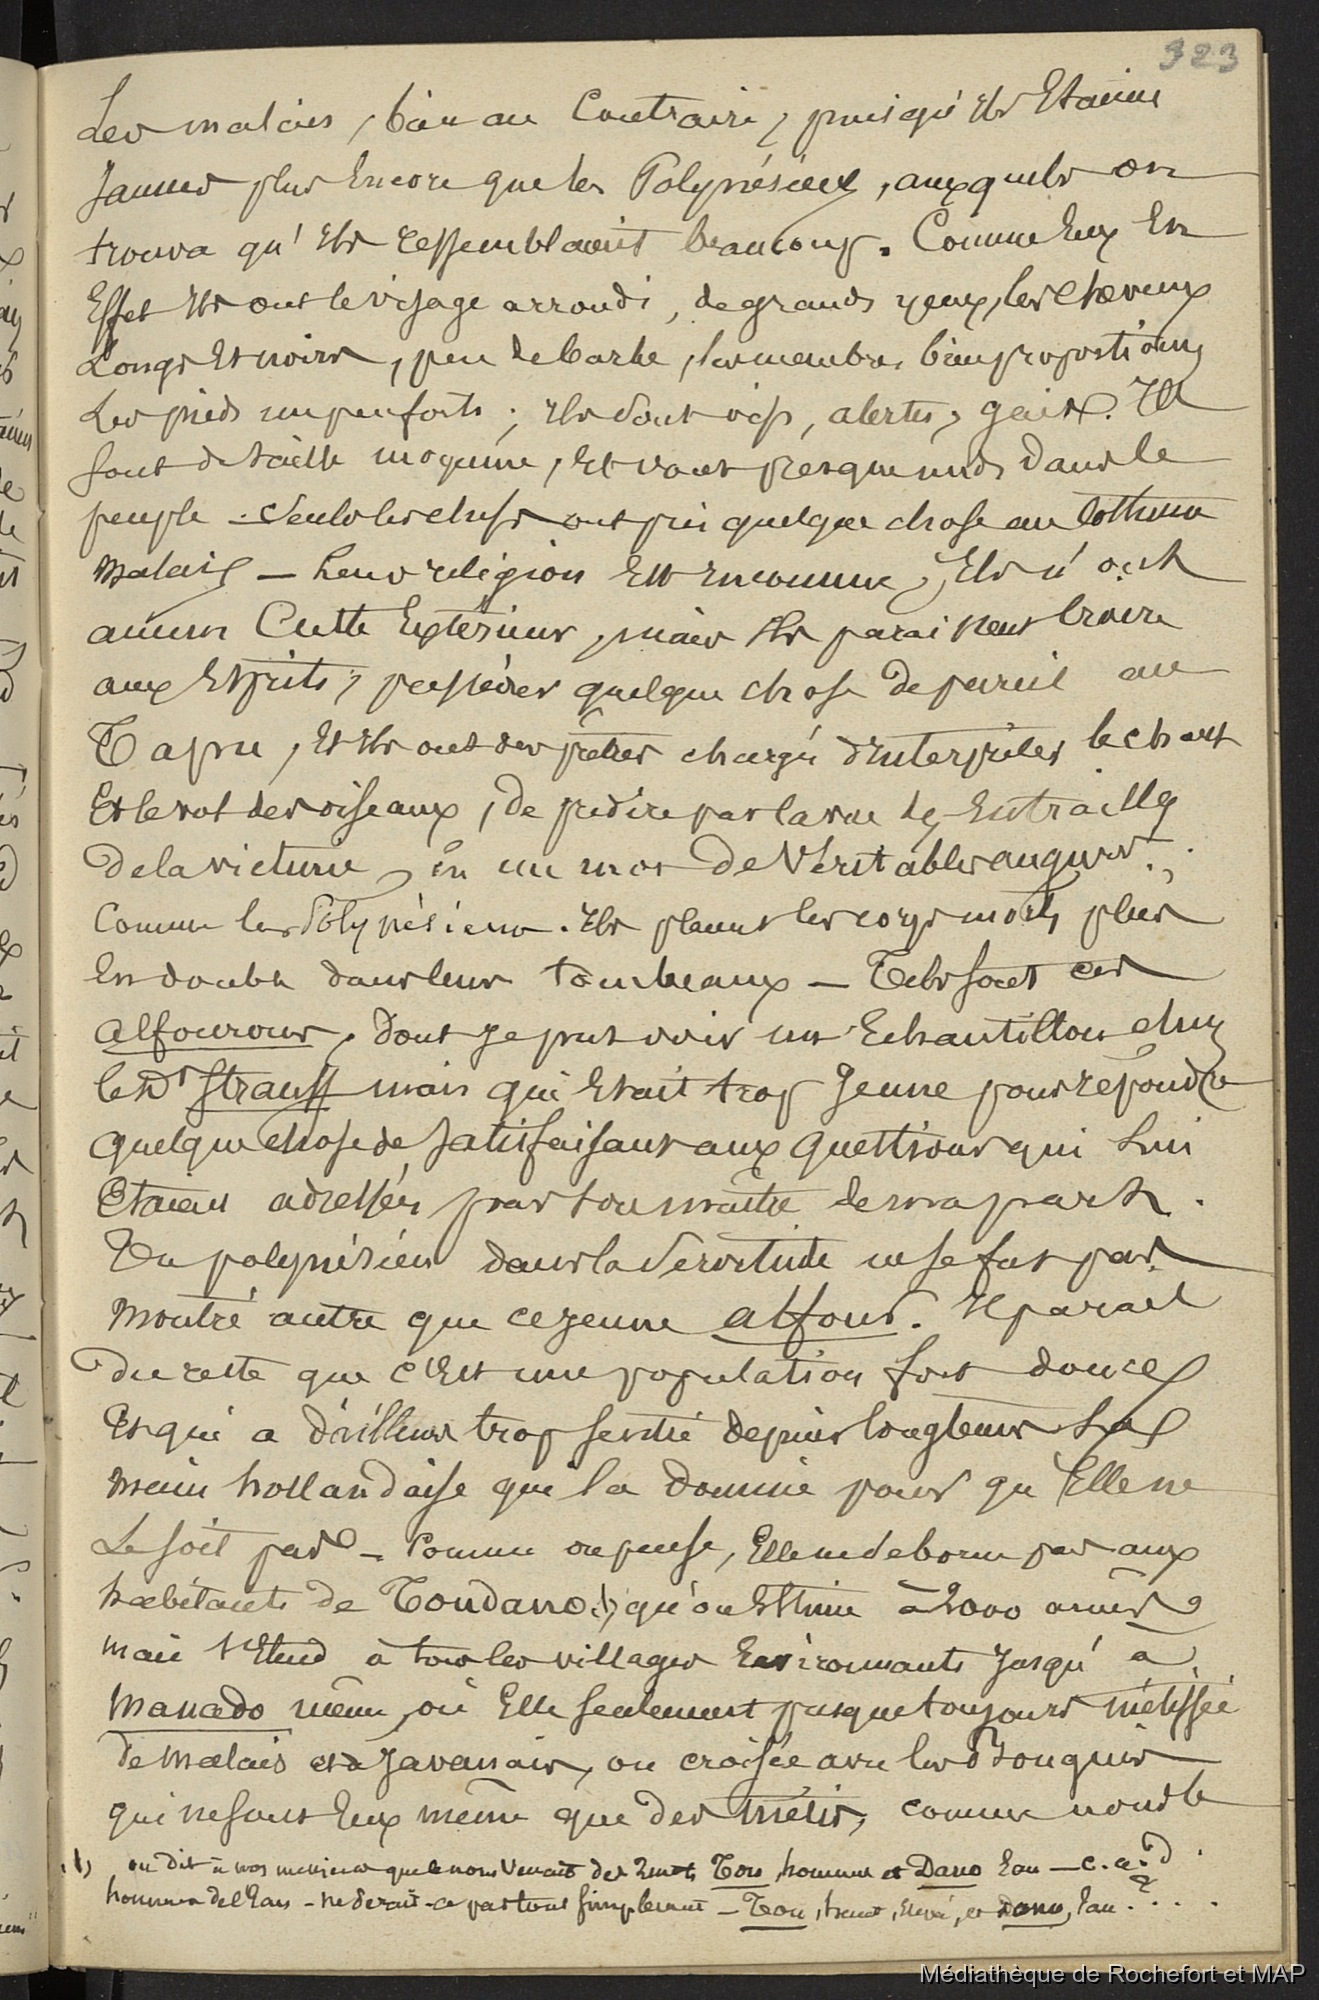 323
Les malais, bien au Contraire, puisqu'ils Etaient
Jaunes plus Encore que les Polynésiens, auxquels on
trouva qu'ils ressemblaient beaucoup. Comme Eux En
Effet ils ont le visage arrondi, de grands yeux, les cheveux
Longs et noirs, peu de barbe, les membres bien proportionnés
Les pieds un peu forts; ils sont vifs, alertes, gais. Ils
sont de taille moyenne, et vont presque nuds dans le
peuple - Seuls les chefs ont pris quelque chose au costume
Malais - Leur religion Est inconnue, ils n'ont
aucun Culte Extérieur, mais ils paraissent Croire
aux Esprits, posséder quelque chose de pareil au
Tapu, et ils ont des prêtres chargés d'interpréter le chant
Et le vol des oiseaux, de prédire par la vue des Entrailles
de la victime, En un mot de Véritables augures.
Comme les Polynésiens. Ils placent les corps morts pliés
En double dans leurs tombeaux - Tels sont ces
Alfourous, dont je pus voir un Echantillon chez
le Dr Strauss mais qui Etait trop Jeune pour répondre
quelque chose de satisfaisant aux questions qui Lui
Etaient adressées par son maître de ma part.
Un polynésien dans la Servitude ne se fut pas
Montré autre que ce jeune Alfour. Il parait
du reste que c'Est une population fort douce
Et qui a d'ailleurs trop senti depuis longtems La
main hollandaise qui la domine pour qu'Elle ne
Le soit pas - Comme on pense, Elle ne se borne pas aux
habitants de Tondano (1), qu'on Estime à 2000 ames
mais s'Etend à tous les villages Environnants Jusqu'à
Manado même, où Elle seulement presque toujours métissée
de Malais et de Javanais, ou croisée avec les
qui ne sont Eux même que des métis, comme nous le
(1) on dit à nos messieurs que le nom Venait des 2 mots Tou, homme et Dano Eau - c. a. d.
hommes de l'Eau - ne serait-ce pas tout simplement - Tou, haut, Elevé, et Dano, Eau ? . . .
Médiathèque de Rochefort et MAP